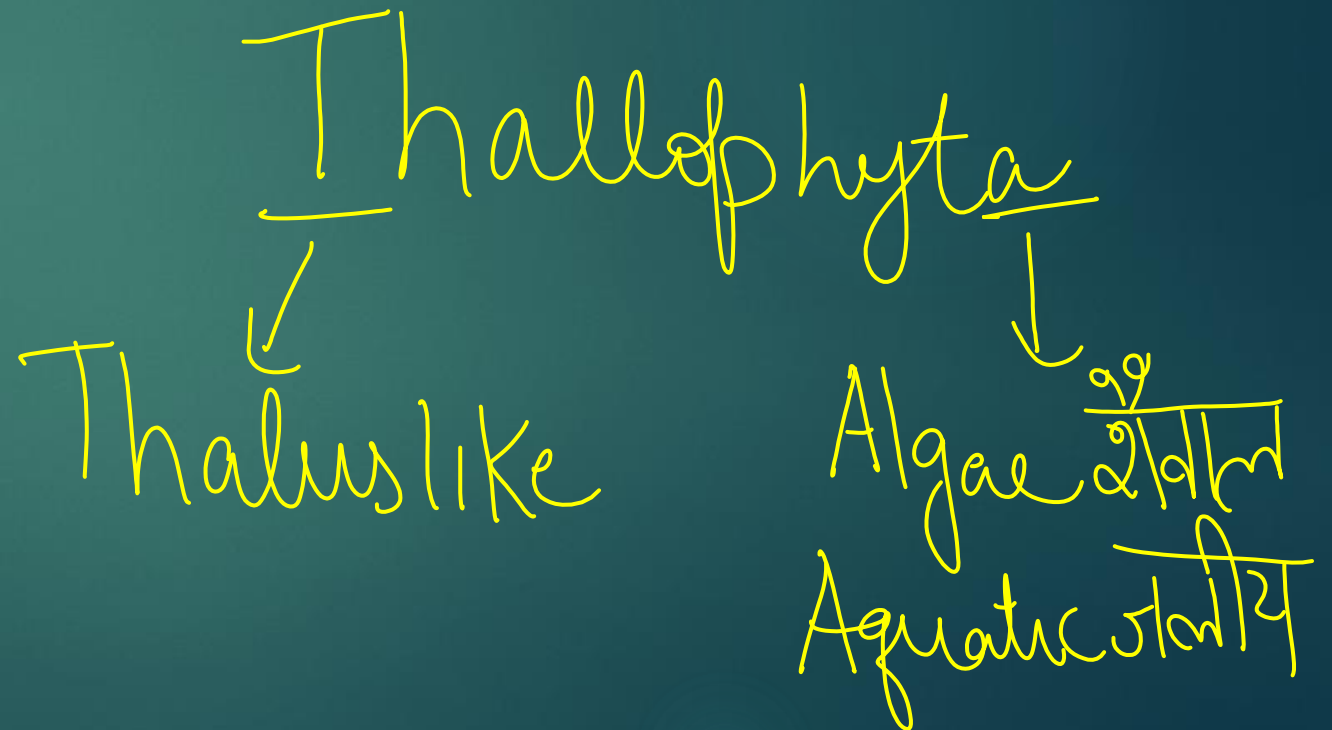 Thallophyta
Thalluslike
Algae शैवाल
Aquatic जलीय